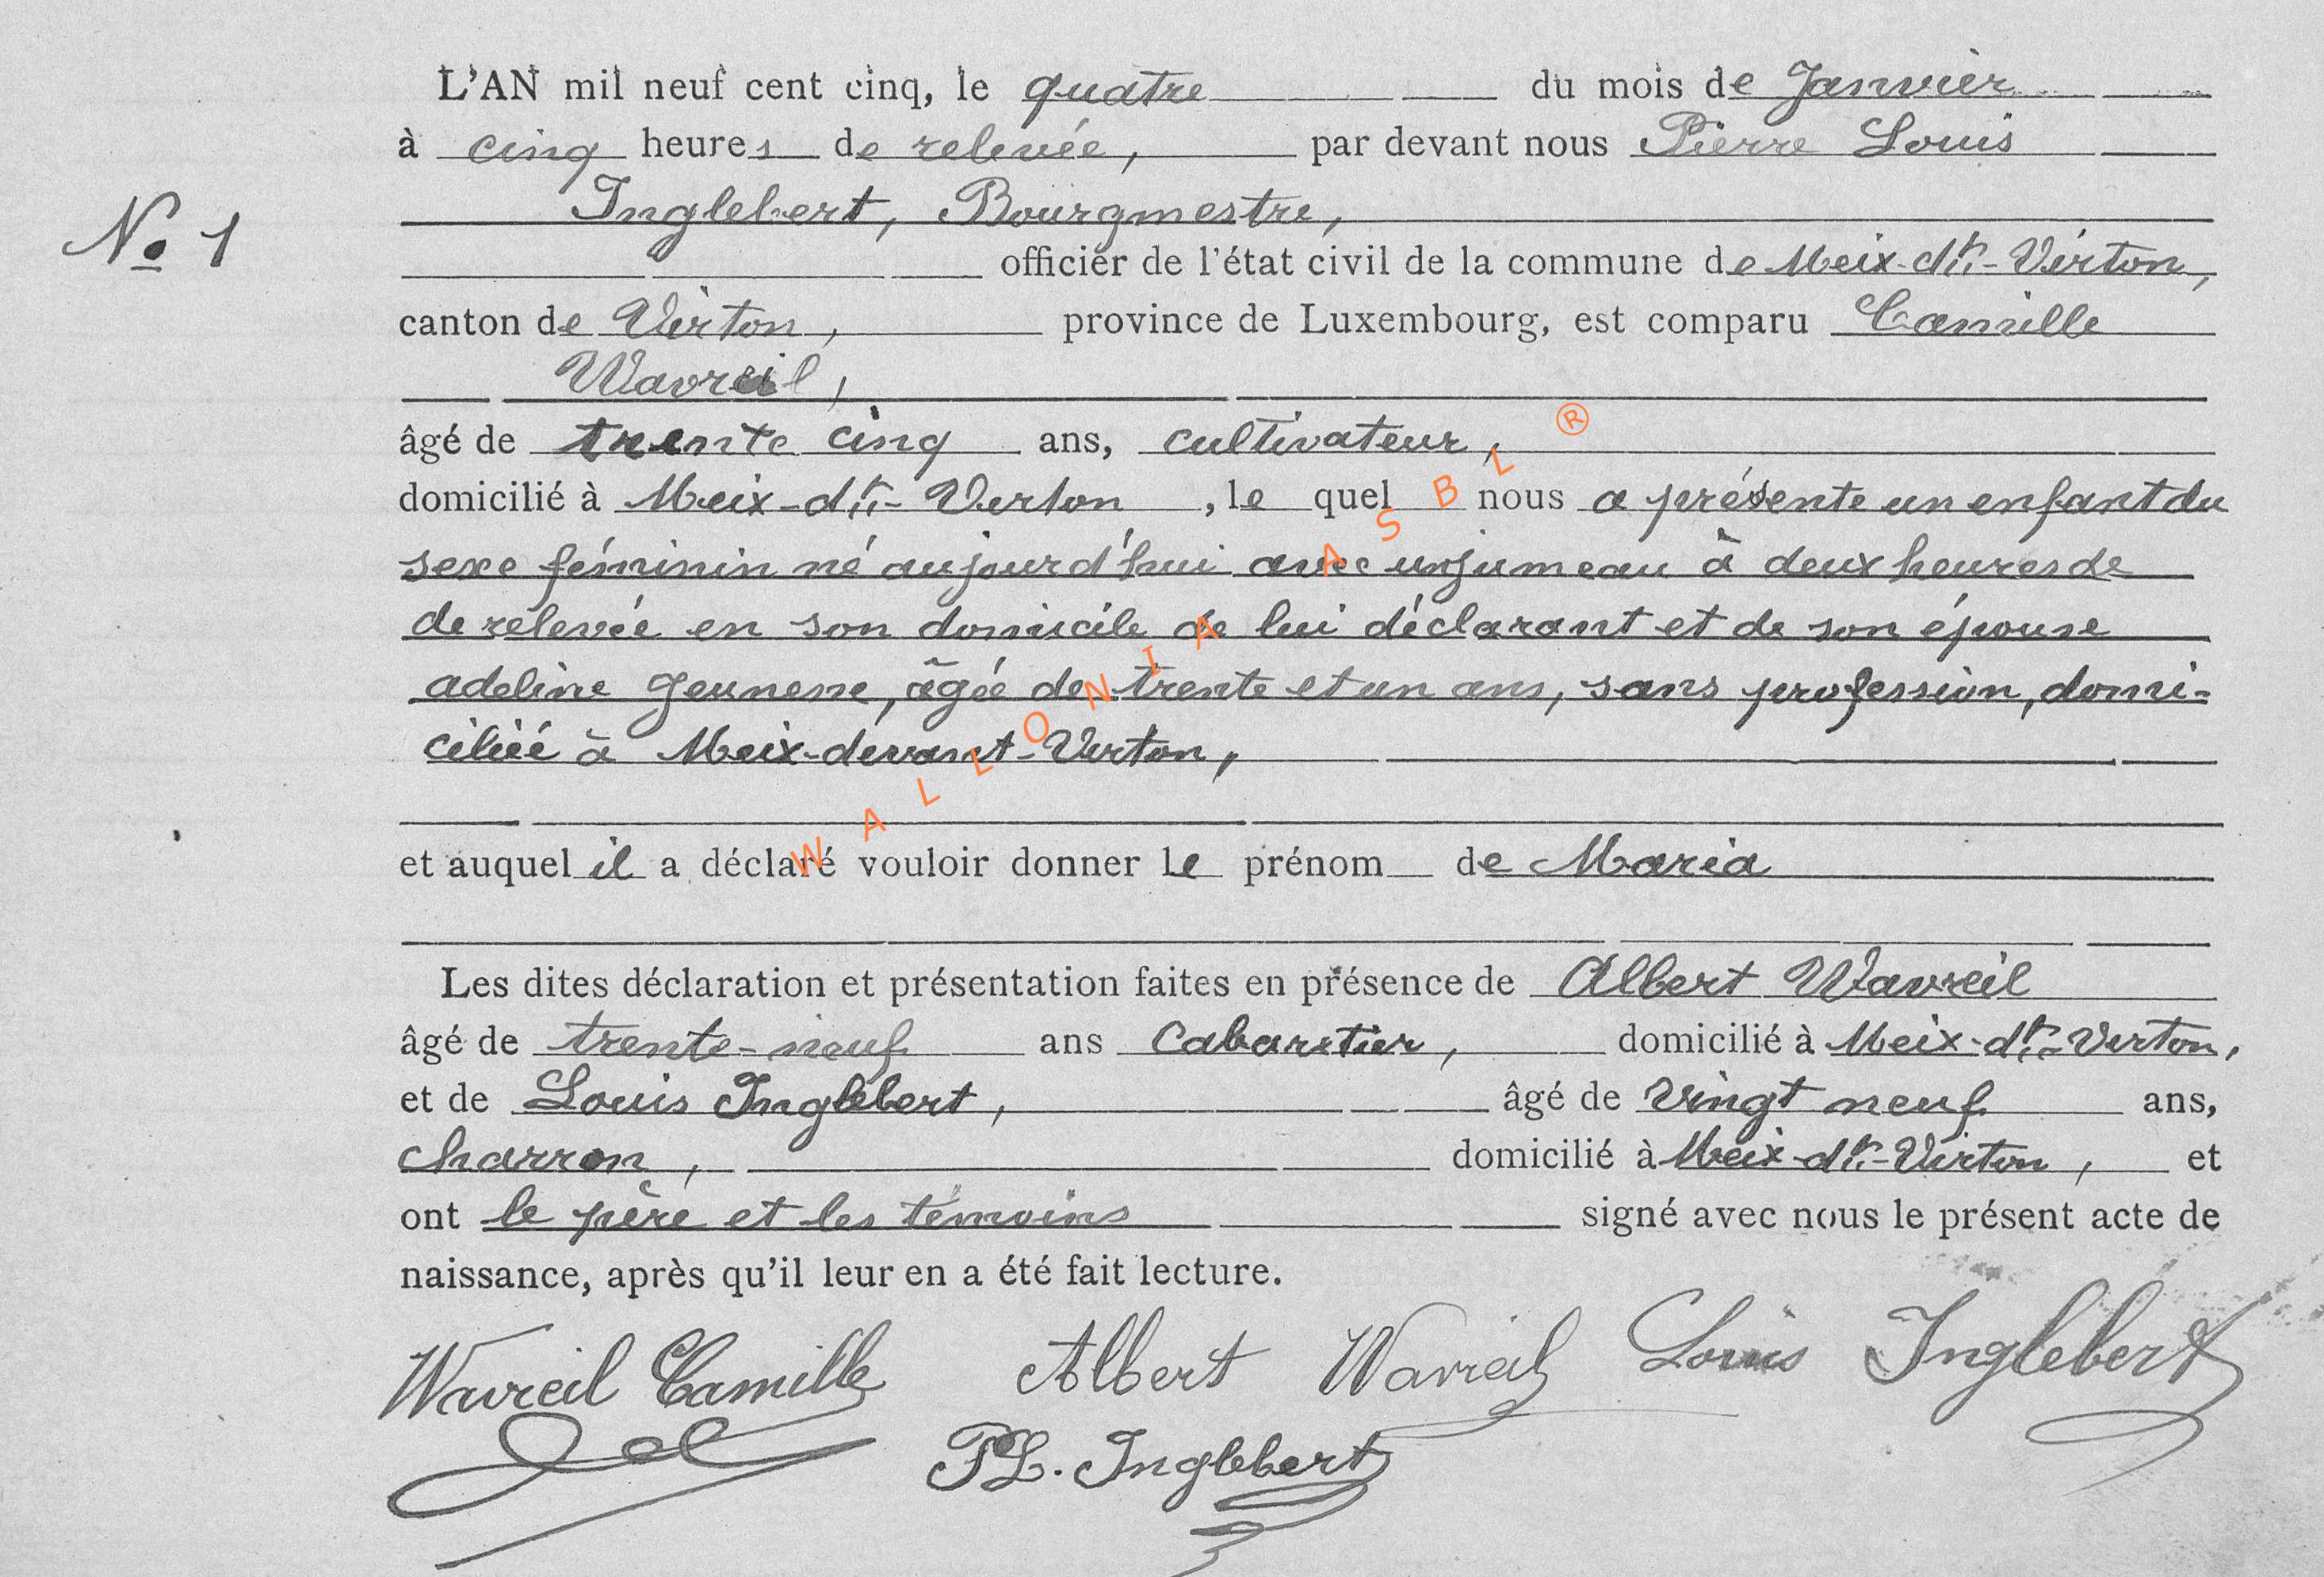 L'AN mil neuf cent cinq, le quatre du mois de Janvier
à cinq heures de relevée, par devant nous Pierre Louis
Inglebert, Bourgmestre,
No 1
officier de l'état civil de la commune de Meix-dt-Virton,
canton de Virton, province de Luxembourg, est comparu Camille
Wavreil,
âgé de trente cinq ans, cultivateur,
domicilié à Meix-dt-Virton, le quel nous a présenté un enfant du
sexe féminin né aujourd'hui avec un jumeau à deux heures de
de relevée en son domicile de lui déclarant et de son épouse
adeline Jeunesse, âgée de trente et un ans, sans profession, domi-
ciliée à Meix-devant-Virton,
et auquel il a déclaré vouloir donner le prénom de Maria
Les dites déclaration et présentation faites en présence de Albert Wavreil
âgé de trente-neuf ans Cabaretier, domicilié à Meix-dt-Virton,
et de Louis Inglebert, âgé de vingt neuf ans,
charron, domicilié à Meix-dt-Virton, et
ont le père et les témoins signé avec nous le présent acte de
naissance, après qu'il leur en a été fait lecture.
Wavreil Camille Albert Wavreil Louis Inglebert
PL. Inglebert
WALLONIA ASBL ®